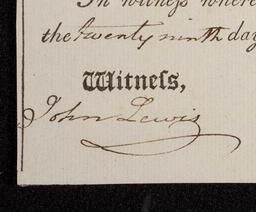 In witness where
the twenty ninth day
Witneſs,
John Lewis